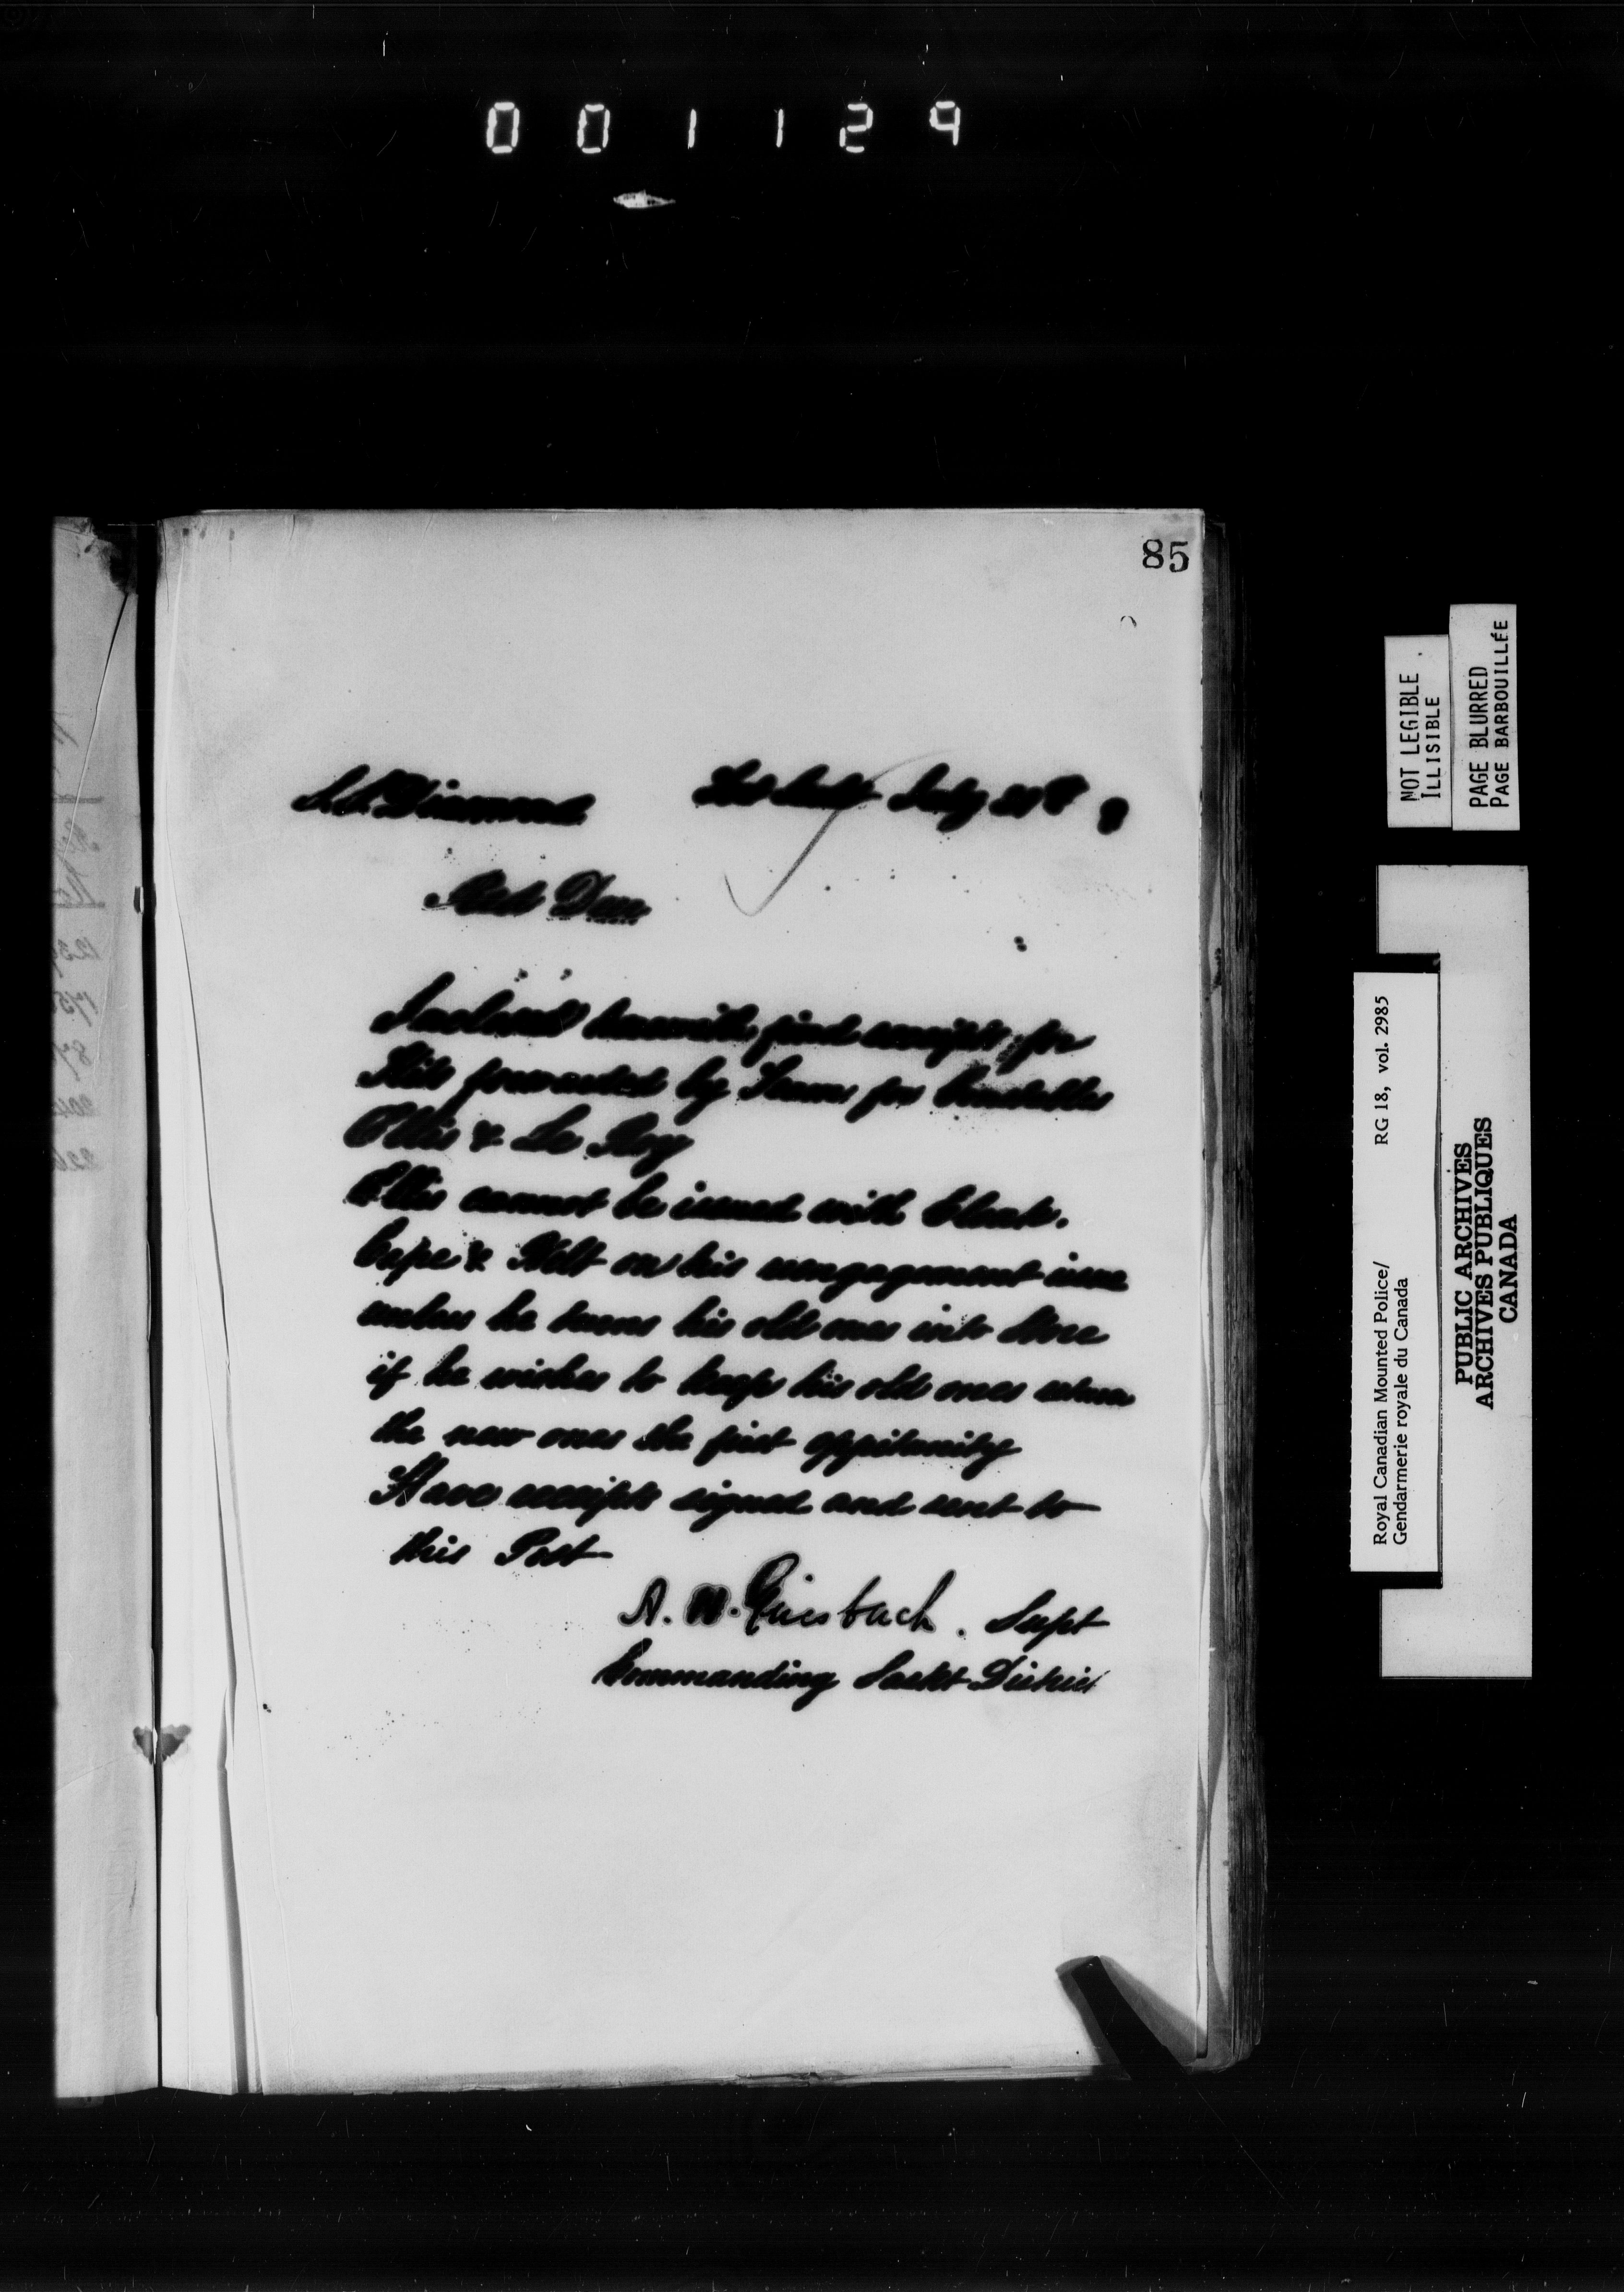 001129
85
July
Red Deer
Inclosed herewith find receipts for
Kits forwarded by Team for Constables
Ellis & Le Roy
Ellis cannot be issued with Cloak.
Cape & Helt on his reengagement issue
unless he turns his old ones into Store
if he wishes to keep his old ones return
the new ones the first oppitunity
Have receipts signed and sent to
this Post
A. H. Griesbach. Supt
Commanding Saskt District
NOT LEGIBLE
ILLISIBLE
PAGE BLURRED
PAGE BARBOUILLÉE
Royal Canadian Mounted Police/ RG 18, vol. 2985
Gendarmerie royale du Canada
PUBLIC ARCHIVES
ARCHIVES PUBLIQUES
CANADA